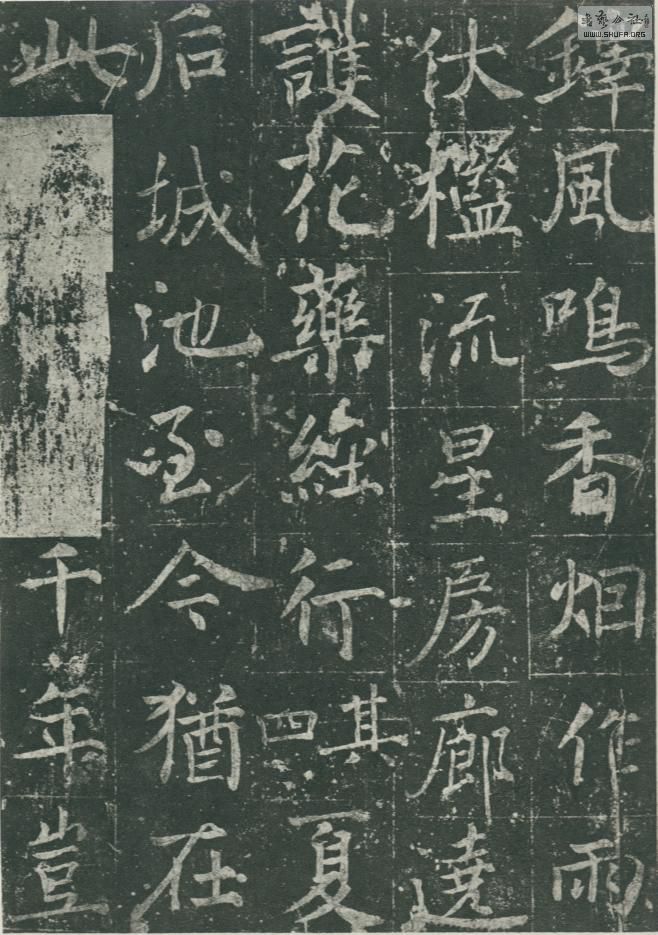 鐸風鳴香烟作雨
伏檻流星房廊遶
護花藥經行其四夏
后城池至今猶在
此千年豈
書藝公社
WWW.SHUFA.ORG